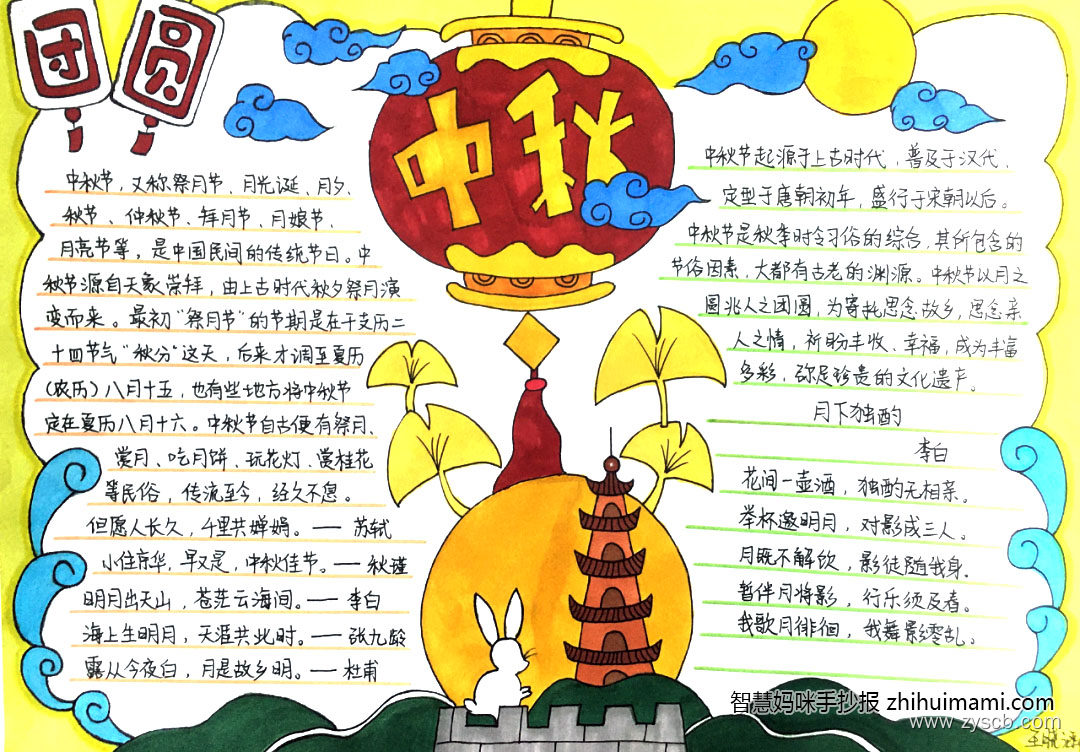 团圆
中秋
中秋节，又称祭月节、月光诞、月夕、
秋节、仲秋节、拜月节、月娘节、
月亮节等，是中国民间的传统节日。中
秋节源自天象崇拜，由上古时代秋夕祭月演
变而来。最初“祭月节”的节期是在干支历二
十四节气“秋分”这天，后来才调至夏历
（农历）八月十五，也有些地方将中秋节
定在夏历八月十六。中秋节自古便有祭月、
赏月、吃月饼、玩花灯、赏桂花
等民俗，传流至今，经久不息。
但愿人长久，千里共婵娟。— 苏轼
小住京华，早又是，中秋佳节。— 秋瑾
明月出天山，苍茫云海间。— 李白
海上生明月，天涯共此时。— 张九龄
露从今夜白，月是故乡明。— 杜甫
中秋节起源于上古时代，普及于汉代、
定型于唐朝初年，盛行于宋朝以后。
中秋节是秋季时令习俗的综合，其所包含的
节俗因素，大都有古老的渊源。中秋节以月之
圆兆人之团圆，为寄托思念故乡，思念亲
人之情，祈盼丰收、幸福，成为丰富
多彩，弥足珍贵的文化遗产。
月下独酌
李白
花间一壶酒，独酌无相亲。
举杯邀明月，对影成三人。
月既不解饮，影徒随我身。
暂伴月将影，行乐须及春。
我歌月徘徊，我舞影零乱。
智慧妈咪手抄报 zhihuimami.com
www.zyscb.com